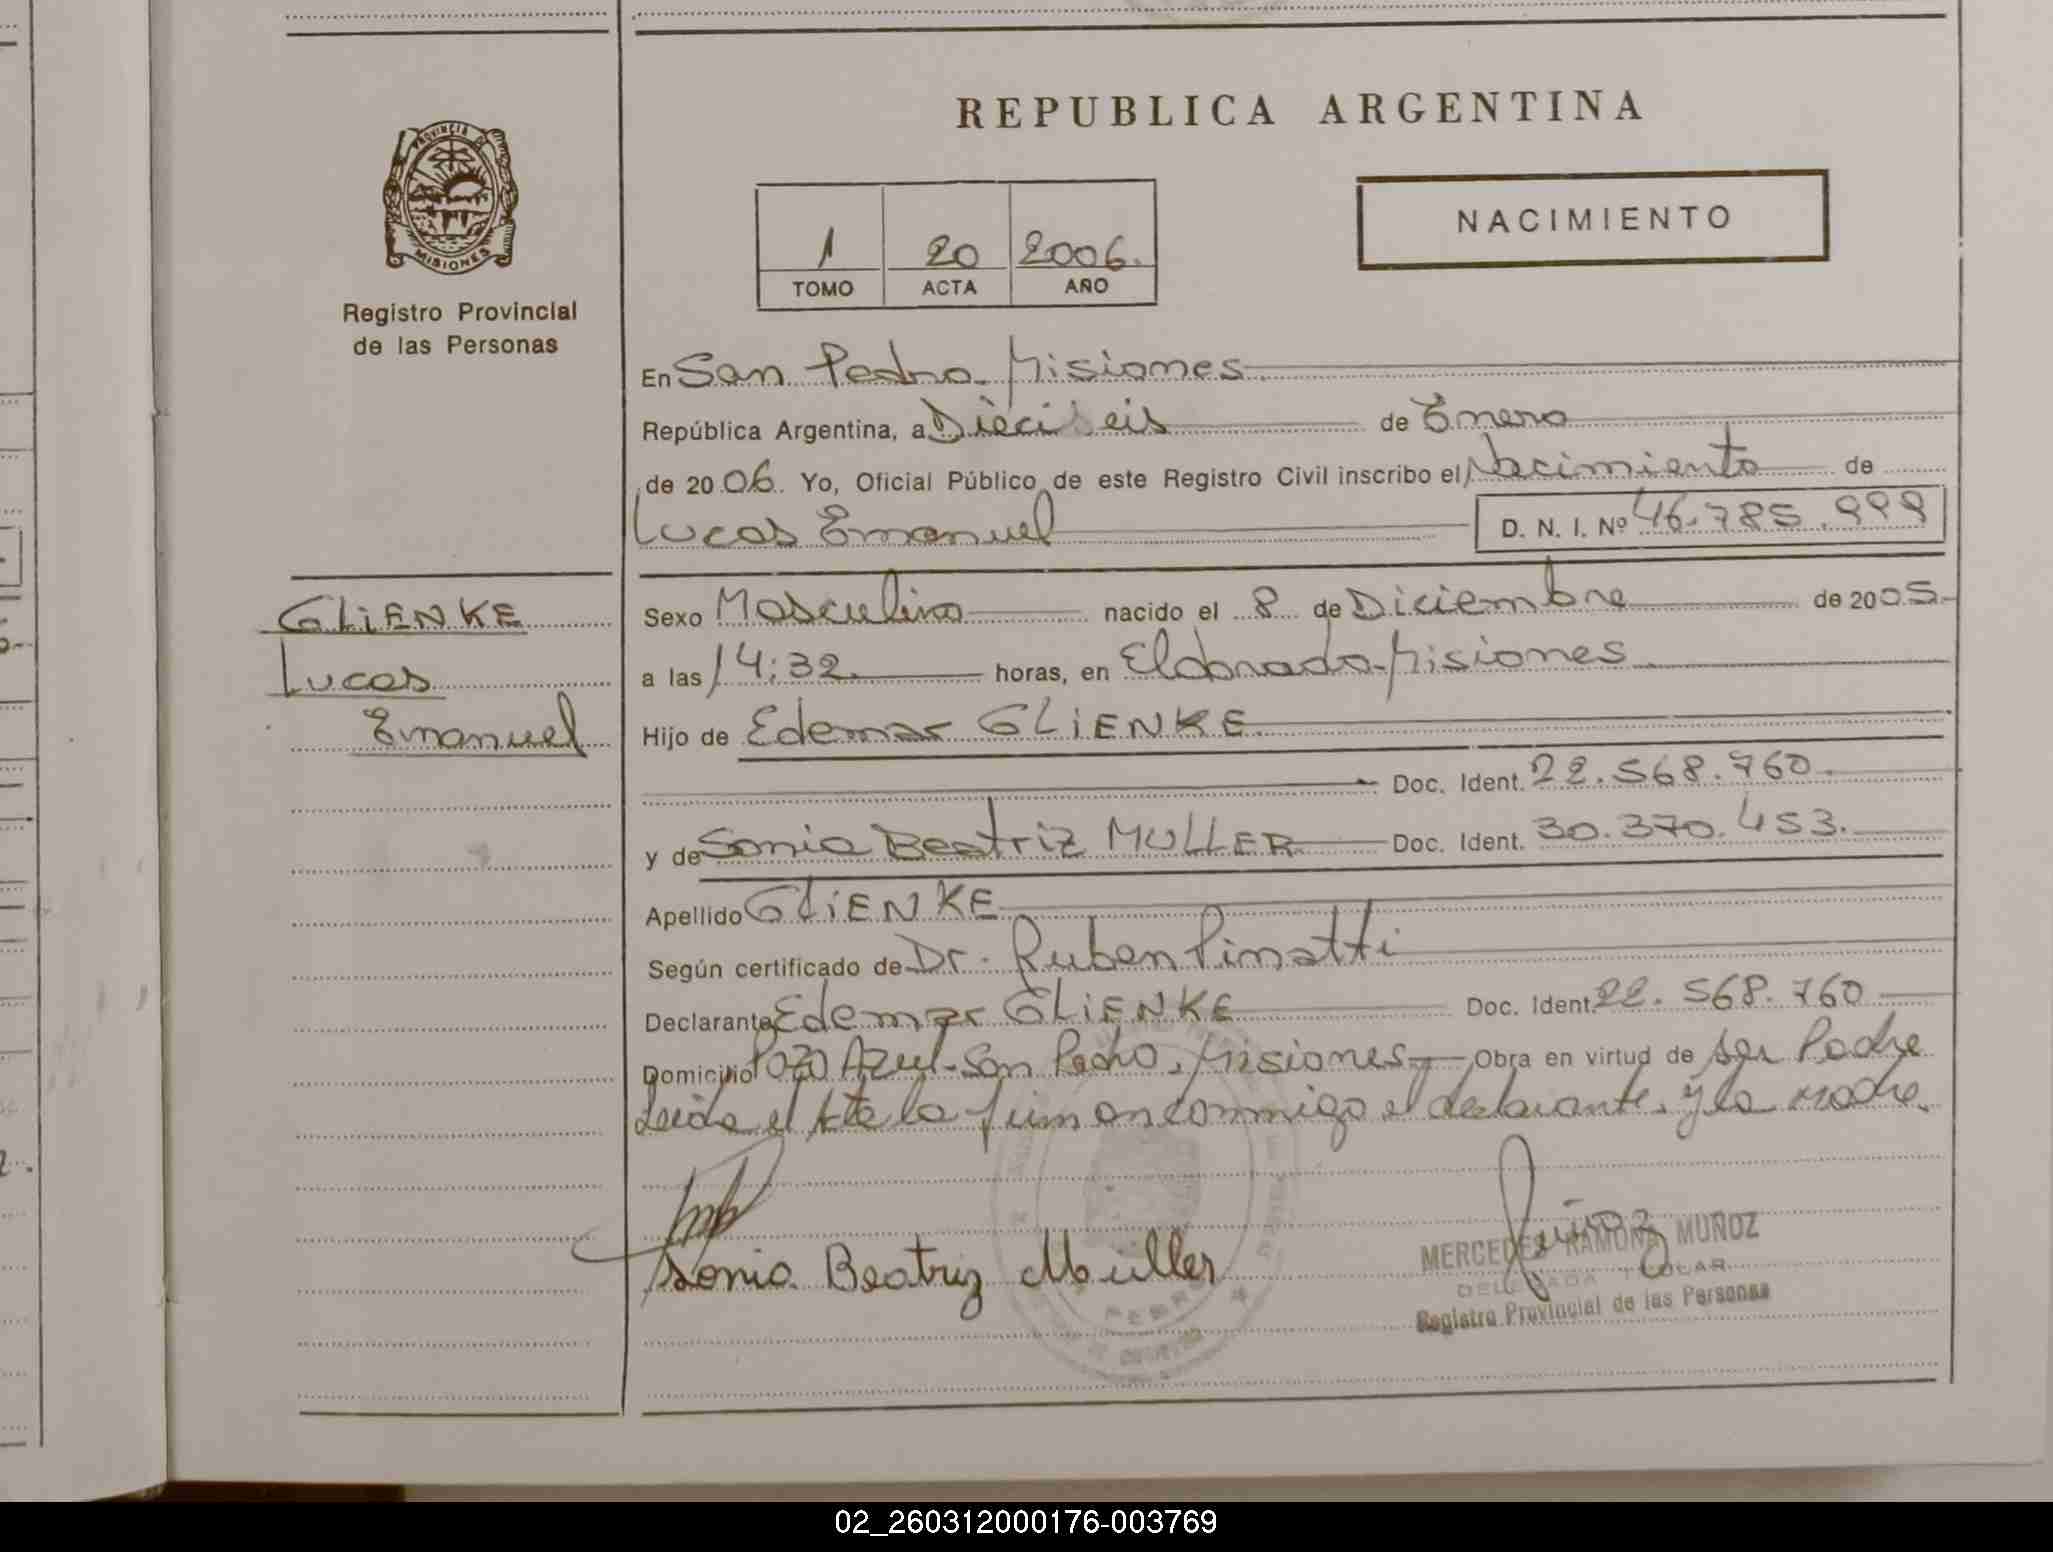 REPUBLICA ARGENTINA
PROVINCIA DE MISIONES
Registro Provincial
de las Personas
1 20 2006.
TOMO ACTA AÑO
NACIMIENTO
En San Pedro. Misiones.
República Argentina, a Dieciseis de Enero
de 2006. Yo, Oficial Público de este Registro Civil inscribo el Nacimiento de
Lucas Emanuel D. N. I. Nº 46.785.999
GLiENKE
Lucas
Emanuel
Sexo Masculino nacido el 8 de Diciembre de 2005.
a las 14:32 horas, en Eldorado. Misiones.
Hijo de Edemar GLiENKE.
Doc. Ident. 22.568.760.
y de Sonia Beatriz MULLER Doc. Ident. 30.370.453.
Apellido GLiENKE
Según certificado de Dr. Ruben Pimatti
Declarante Edemar GLiENKE Doc. Ident. 22.568.760
Domicilio Pozo Azul-San Pedro. Misiones Obra en virtud de ser Padre
Leida el Acta la firman conmigo el declarante. y la madre.
Sonia Beatriz Müller
MERCEDES RAMONA MUÑOZ
DELEGADA TITULAR
Registro Provincial de las Personas
02_260312000176-003769